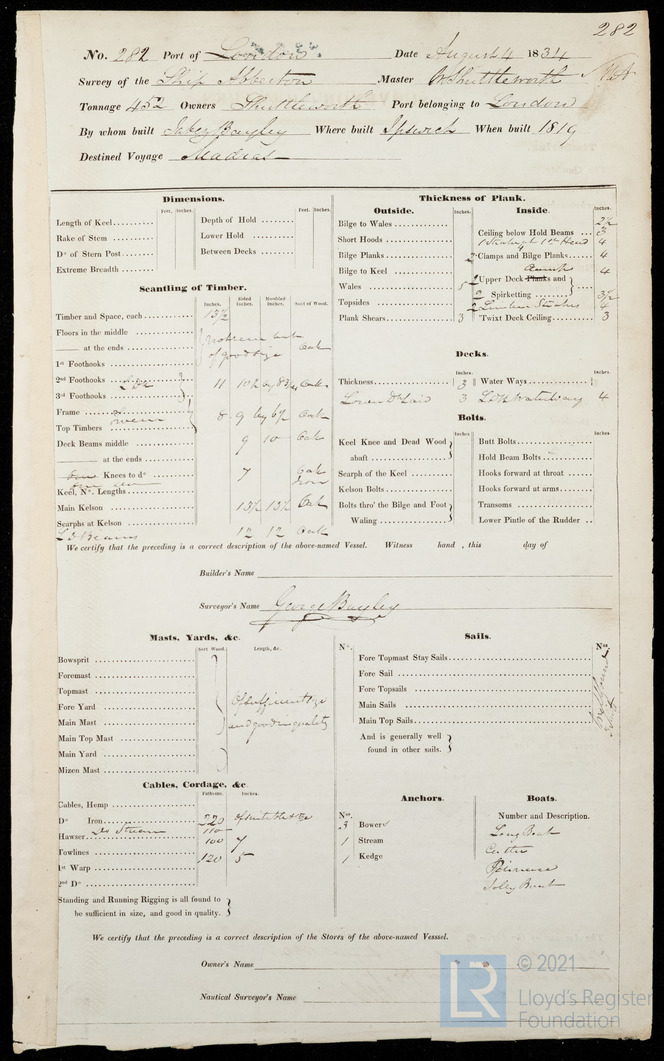 282
No. 282 Port of London Date August 4 1834
Survey of the Ship Abberton Master Shuttleworth
Tonnage 452 Owners Shuttleworth Port belonging to London
By whom built Jabez Bayley Where built Ipswich When built 1819
Destined Voyage Madras
Dimensions.
Feet. Inches. Feet. Inches.
Length of Keel Depth of Hold
Rake of Stem Lower Hold
Do of Stern Post Between Decks
Extreme Breadth
Thickness of Plank.
Outside. Inside.
Inches. Inches.
Bilge to Wales 2½
Short Hoods Ceiling below Hold Beams 3
4
Bilge Planks Clamps and Bilge Planks 4
Bilge to Keel 4
Wales 5 Upper Deck Planks and
Topsides Spirketting 3½
Plank Shears 3 'Twixt Deck Ceiling 3
Scantling of Timber.
Inches. Sided Inches. Moulded Inches. Sort of Wood.
Timber and Space, each
Floors in the middle
at the ends of good size Oak
1st Foothooks
2nd Foothooks 11 10½ by 8¾ Oak
3rd Foothooks
Frame 8 9 by 6½ Oak
Top Timbers
Deck Beams middle 9 10 Oak
at the ends
Knees to do 7 Oak
Iron
Keel, No. Lengths
Main Kelson 13½ 13½ Oak
Scarphs at Kelson
L D Beams 12 12 Oak
Decks.
Inches. Inches.
Thickness 3 Water Ways
Lower Dk Laid 3 L Dk Waterway 4
Bolts.
Inches Inches.
Keel Knee and Dead Wood Butt Bolts
abaft Hold Beam Bolts
Scarph of the Keel Hooks forward at throat
Kelson Bolts Hooks forward at arms
Bolts thro' the Bilge and Foot Transoms
Waling Lower Pintle of the Rudder
We certify that the preceding is a correct description of the above-named Vessel. Witness hand , this day of
Builder's Name
Surveyor's Name George Bayley
Masts, Yards, &c.
Sort Wood. Length, &c.
Bowsprit
Foremast
Topmast
Fore Yard Of sufficient size
Main Mast and good in quality
Main Top Mast
Main Yard
Mizen Mast
Sails.
No. Nos.
Fore Topmast Stay Sails
Fore Sail
Fore Topsails
Main Sails
Main Top Sails
And is generally well
found in other sails.
Cables, Cordage, &c
Fathoms. Inches.
Cables, Hemp
Do Iron 220 Of suitable size
Do Stream 110
Hawser 100 7
Towlines 120 5
1st Warp
2nd Do
Standing and Running Rigging is all found to
be sufficient in size, and good in quality.
Anchors.
Nos.
3 Bower
1 Stream
1 Kedge
Boats.
Number and Description.
Long Boat
Cutter
Jolly Boat
We certify that the preceding is a correct description of the Stores of the above-named Vesssel.
Owner's Name
Nautical Surveyor's Name
LR
© 2021
Lloyd's Register
Foundation